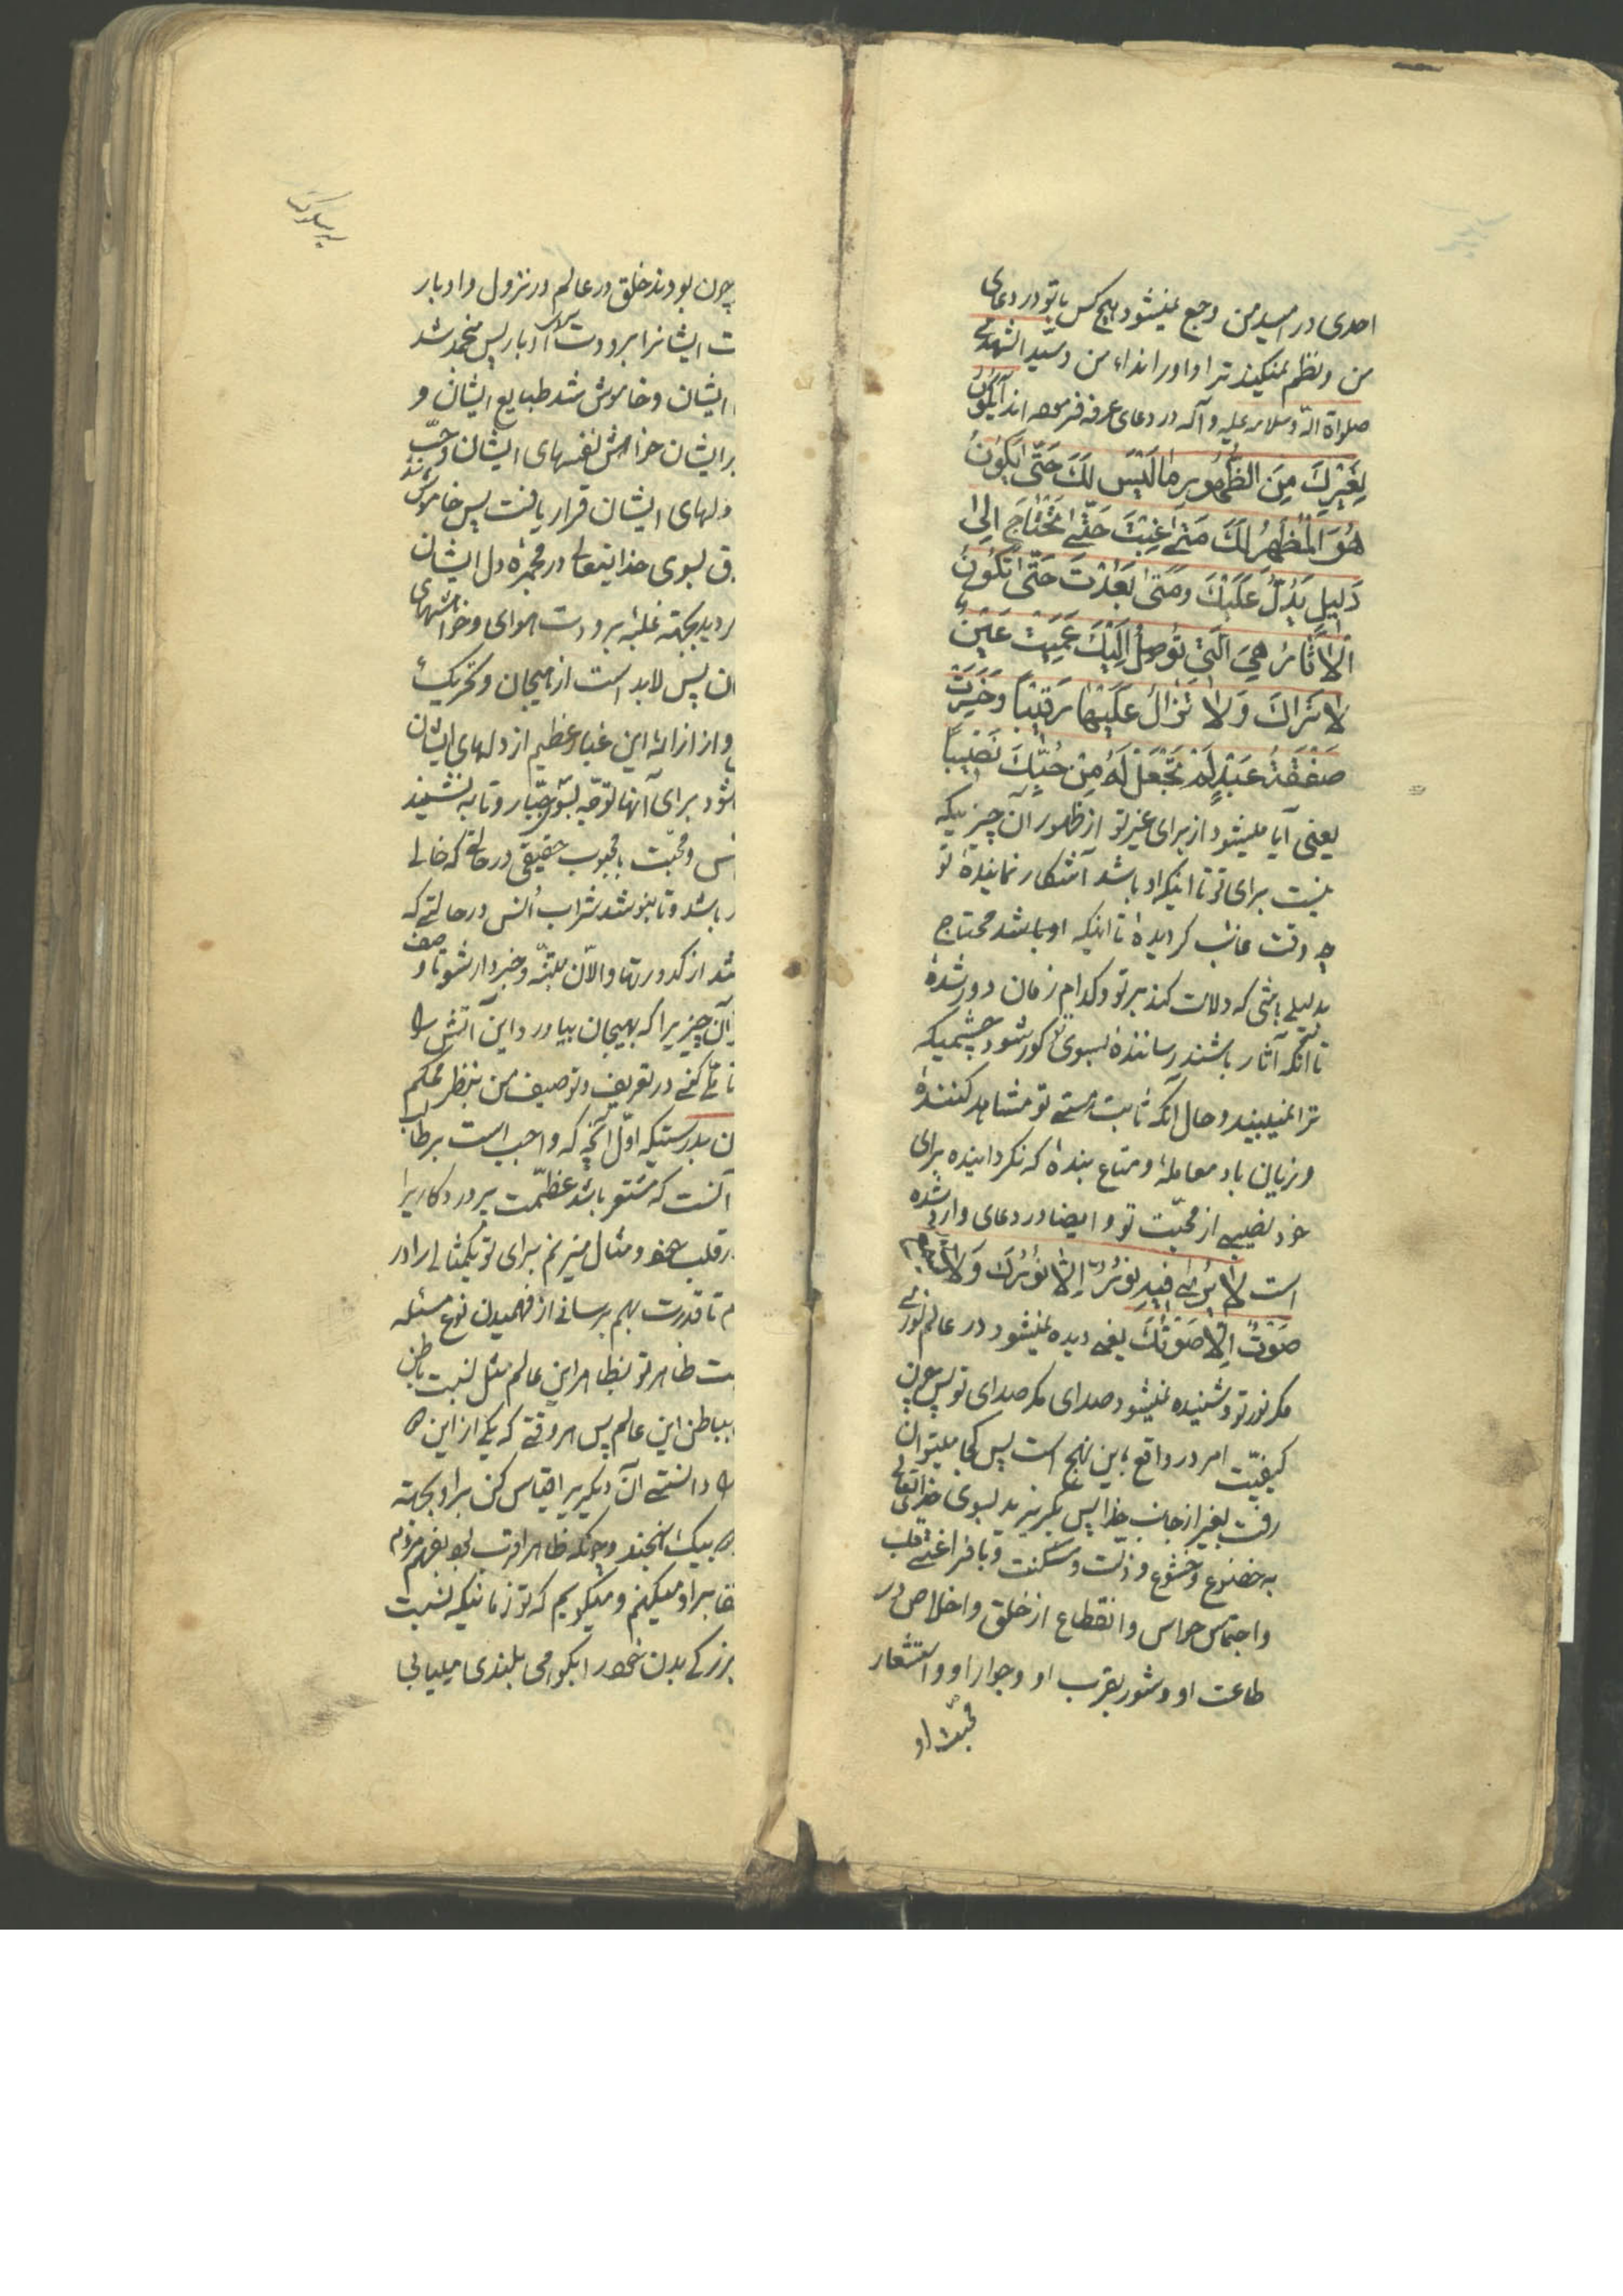 احدی در امید من و جمع نمیشود هیچ کس با تو در دعای
من و نظم نمیکند ترا و او را نداء من و سیّد الشهداء
صلواة الله و سلامه علیه و آله در دعای عرفه فرموده اند أَیَکُونُ
لِغَیْرِكَ مِنَ الظُّهُورِ مَا لَیْسَ لَكَ حَتّیٰ یَکُونَ
هُوَ الْمُظْهِرَ لَكَ مَتیٰ غِبْتَ حَتّیٰ تَحْتَاجَ اِلیٰ
دَلیلٍ یَدُلُّ عَلَیْكَ وَمَتیٰ بَعُدْتَ حَتّیٰ تَکُونَ
الْاٰثَارُ هِیَ الَّتِی تُوصِلُ اِلَیْكَ عَمِیَتْ عَیْنٌ
لَا تَرَاكَ وَلَا تَزَالُ عَلَیْهَا رَقیبًا وَخَسِرَتْ
صَفْقَةُ عَبْدٍ لَمْ تَجْعَلْ لَهُ مِنْ حُبِّكَ نَصِیبًا
یعنی آیا میشود از برای غیر تو از ظهور آن چیزیکه
نیست برای تو تا اینکه او باشد آشکار نماینده تو
چه وقت غائب گردیدهٔ تا اینکه او باشد محتاج
بدلیلی باشی که دلالت کند بر تو و کدام زمان دور شدهٔ
تا آنکه آثار باشند رسانندهٔ بسوی تو کور شود چشمیکه
ترا نمیبیند و حال آنکه ثابت هستی تو مشاهد کنندهٔ
و زیان باد معاملهٔ و متاع بندهٔ که نکردانیده برای
خود نصیبی از محبّت تو و ایضا در دعای وارد شده
است لَا یُریٰ فِیهِ نُورٌ اِلَّا نُورُكَ وَلَا یُسْمَعُ
صَوْتٌ اِلَّا صَوْتُكَ یعنی دیده نمیشود در عالم نوری
مکر نور تو و شنیده نمیشود صدای مکر صدای تو پس چون
کیفیّت امر در واقع باین نهج است پس کجا میتوان
رفت بغیر از جانب خدا پس بگریزید بسوی خدایتعالی
به خضوع و خشوع و ذلت و مسکنت و با فراغتی قلب
و اجتماع حواس و انقطاع از خلق و اخلاص در
طاعت او و شعور بقرب او و جوار او و استشعار
محبّت او
سیر سلوک
چون بودند خلق در عالم در نزول و ادبار
ت ایشانرا برودت ادبار پس منجمد شد
ایشان و خاموش شد طبایع ایشان و
بر ایشان خواهش نفسهای ایشان و حبّ
دلهای ایشان قرار یافت پس خاموش ماند
ق بسوی خدایتعالی در مجمرهٔ دل ایشان
ردید بجهته غلبهٔ برودت هوای و خواهشهای
ن پس لابد است از هیجان و تحریک
و از ازاله این غبار عظیم از دلهای ایشان
شود برای آنها توجّه بسوی جبّار و تا بنشینند
نس و محبّت با محبوب حقیقی در حالتی که خالی
باشد و تا بنوشند شراب اُنس در حالتی که صاف
شد از کدورتها و الآن متنبّه و خبردار شو تا
آن چیزیرا که بهیجان بیاورد این آتش را
تأمّل کنی در تعریف و توصیف من بنظر محکم
ن بدرستیکه اوّل آنچه که واجب است بر طالب
آنست که مستشعر باشد عظمت پروردکاریرا
در قلب خود و مثال میزنم برای تو یکمثالی را در
م تا قدرت بهم برسانی از فهمیدن نوع مسئله
ت ظاهر تو بظاهر این عالم مثل نسبت باطن
بباطن این عالم پس هر وقتی که یکی از این
را دانستی آن دیکریرا قیاس کن بر او بجهته
بیک نهجند و چونکه ظاهر اقرب بود بفهم مردم
بر او میکنیم و میکوییم که تو زمانیکه نسبت
بزرکی بدن خود را بکوهی بلندی میابی